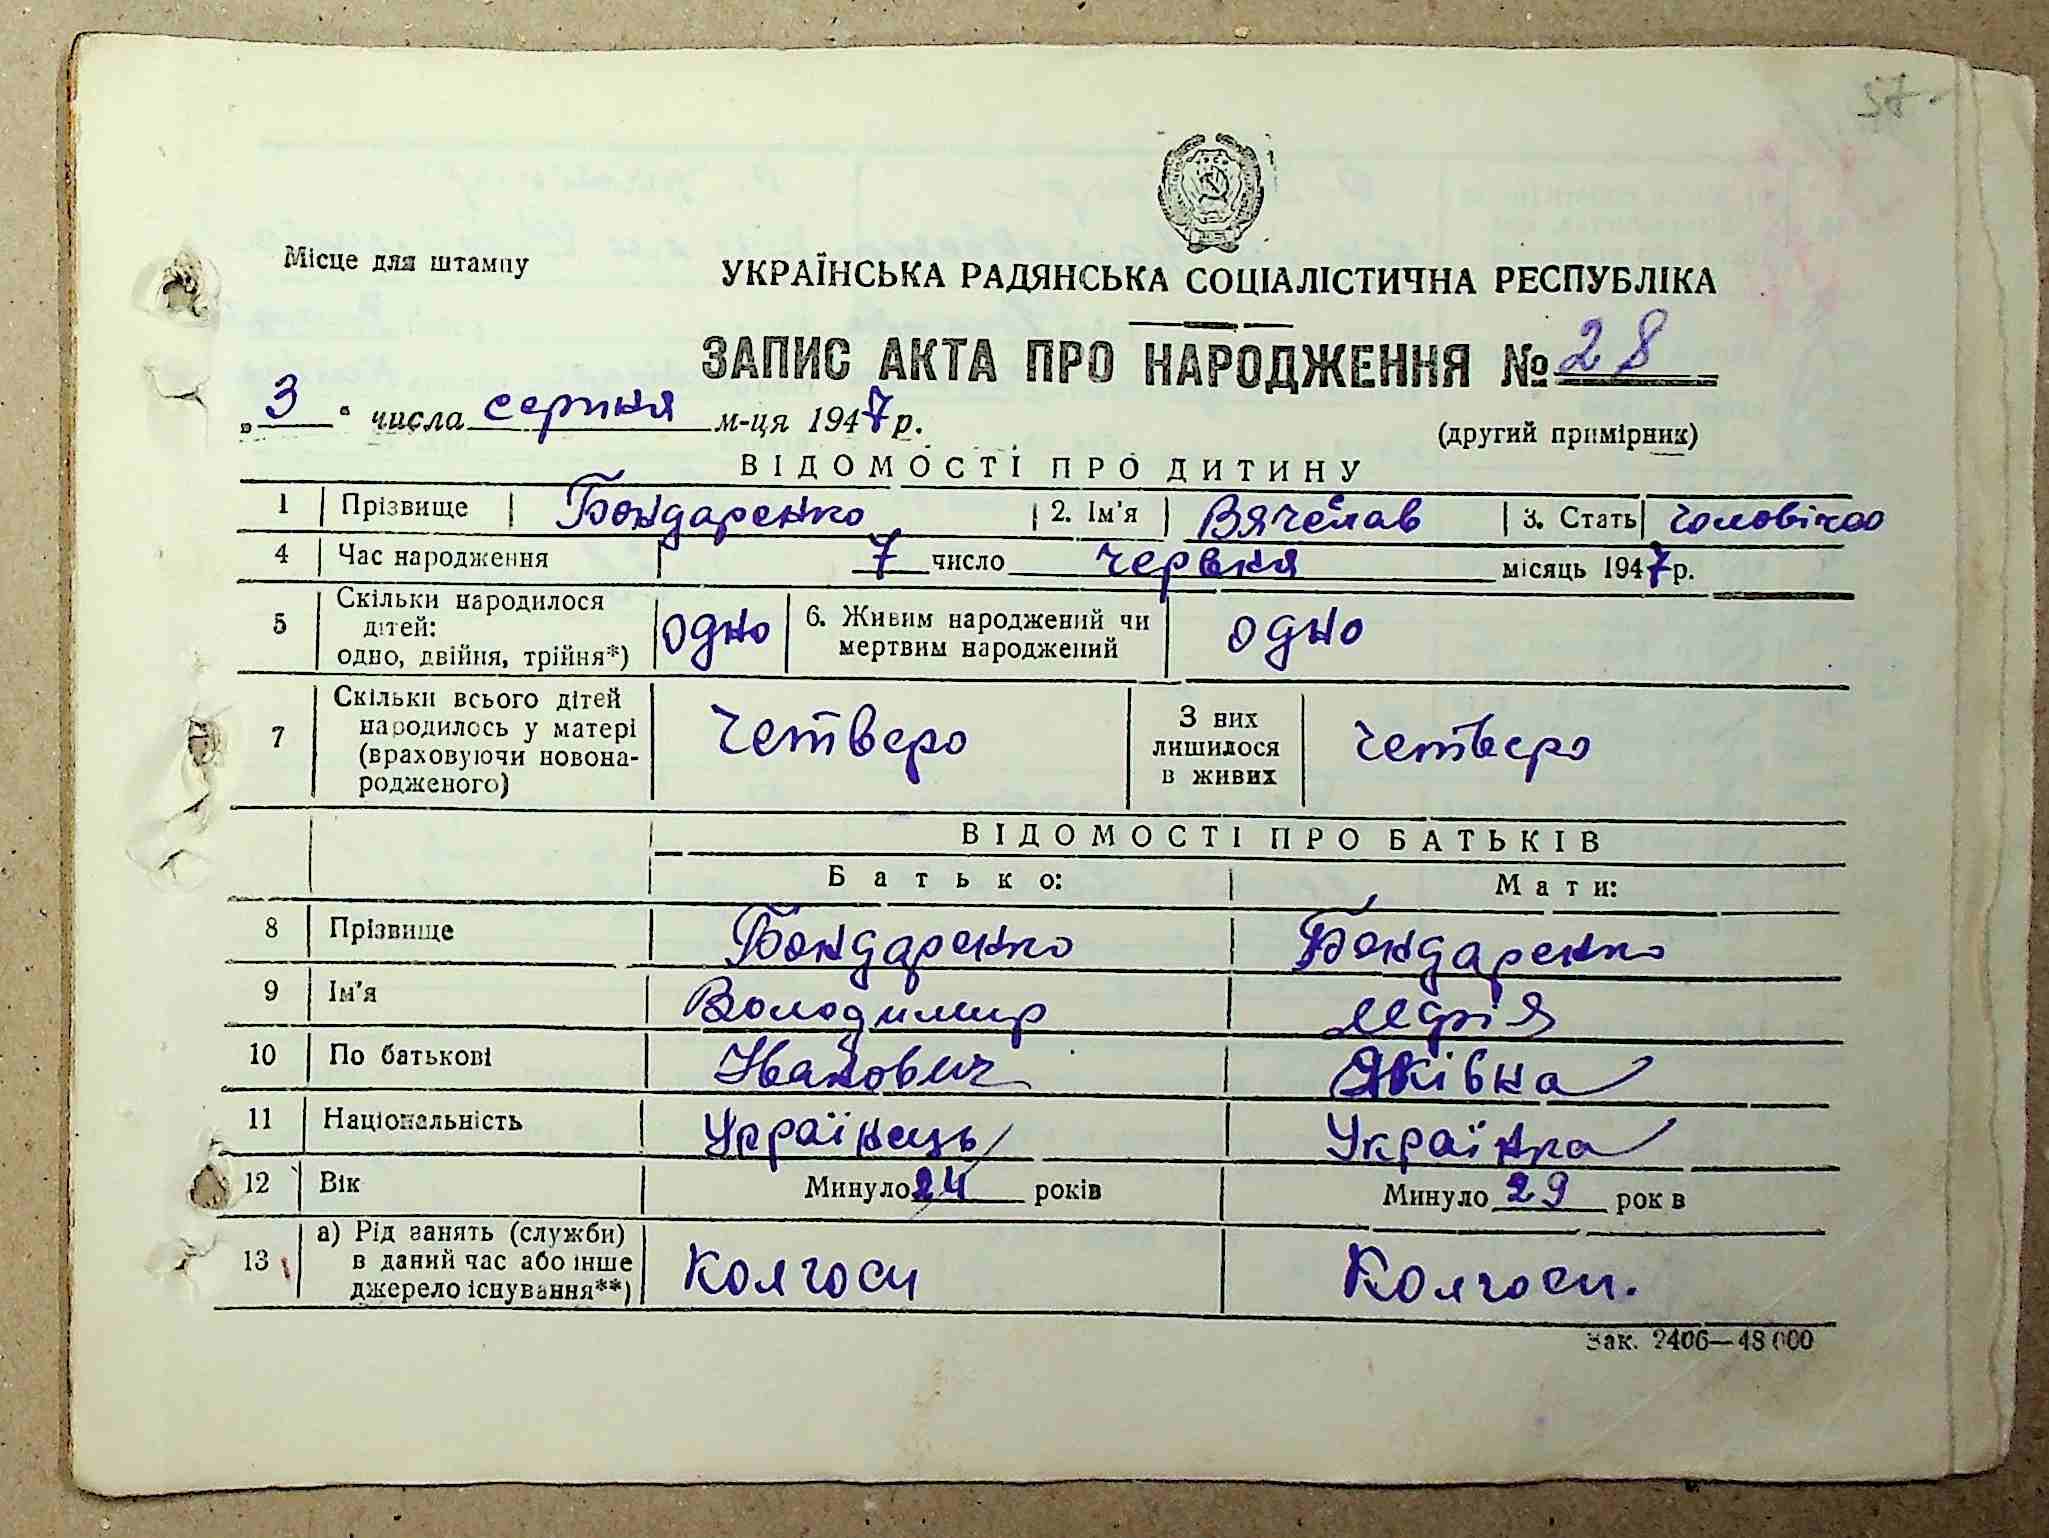 57
Місце для штампу
УКРАЇНСЬКА РАДЯНСЬКА СОЦІАЛІСТИЧНА РЕСПУБЛІКА
ЗАПИС АКТА ПРО НАРОДЖЕННЯ № 28
„3“ числа серпня м-ця 1947 р.
(другий примірник)
ВІДОМОСТІ ПРО ДИТИНУ
1 Прізвище Бондаренко 2. Ім'я Вячеслав 3. Стать
4 Час народження 7 число червня місяць 1947 р.
5 Скільки народилося дітей: одно, двійня, трійня*) одно 6. Живим народжений чи мертвим народжений одно
7 Скільки всього дітей народилось у матері (враховуючи новонародженого) четверо З них лишилося в живих четверо
ВІДОМОСТІ ПРО БАТЬКІВ
Батько: Мати:
8 Прізвище Бондаренко Бондаренко
9 Ім'я Володимир
10 По батькові Іванович Яківна
11 Національність Українець Українка
12 Вік Минуло 24 років Минуло 29 років
13 а) Рід занять (служби) в даний час або інше джерело існування**) Колгосп Колгосп.
Зак. 2406—48 000